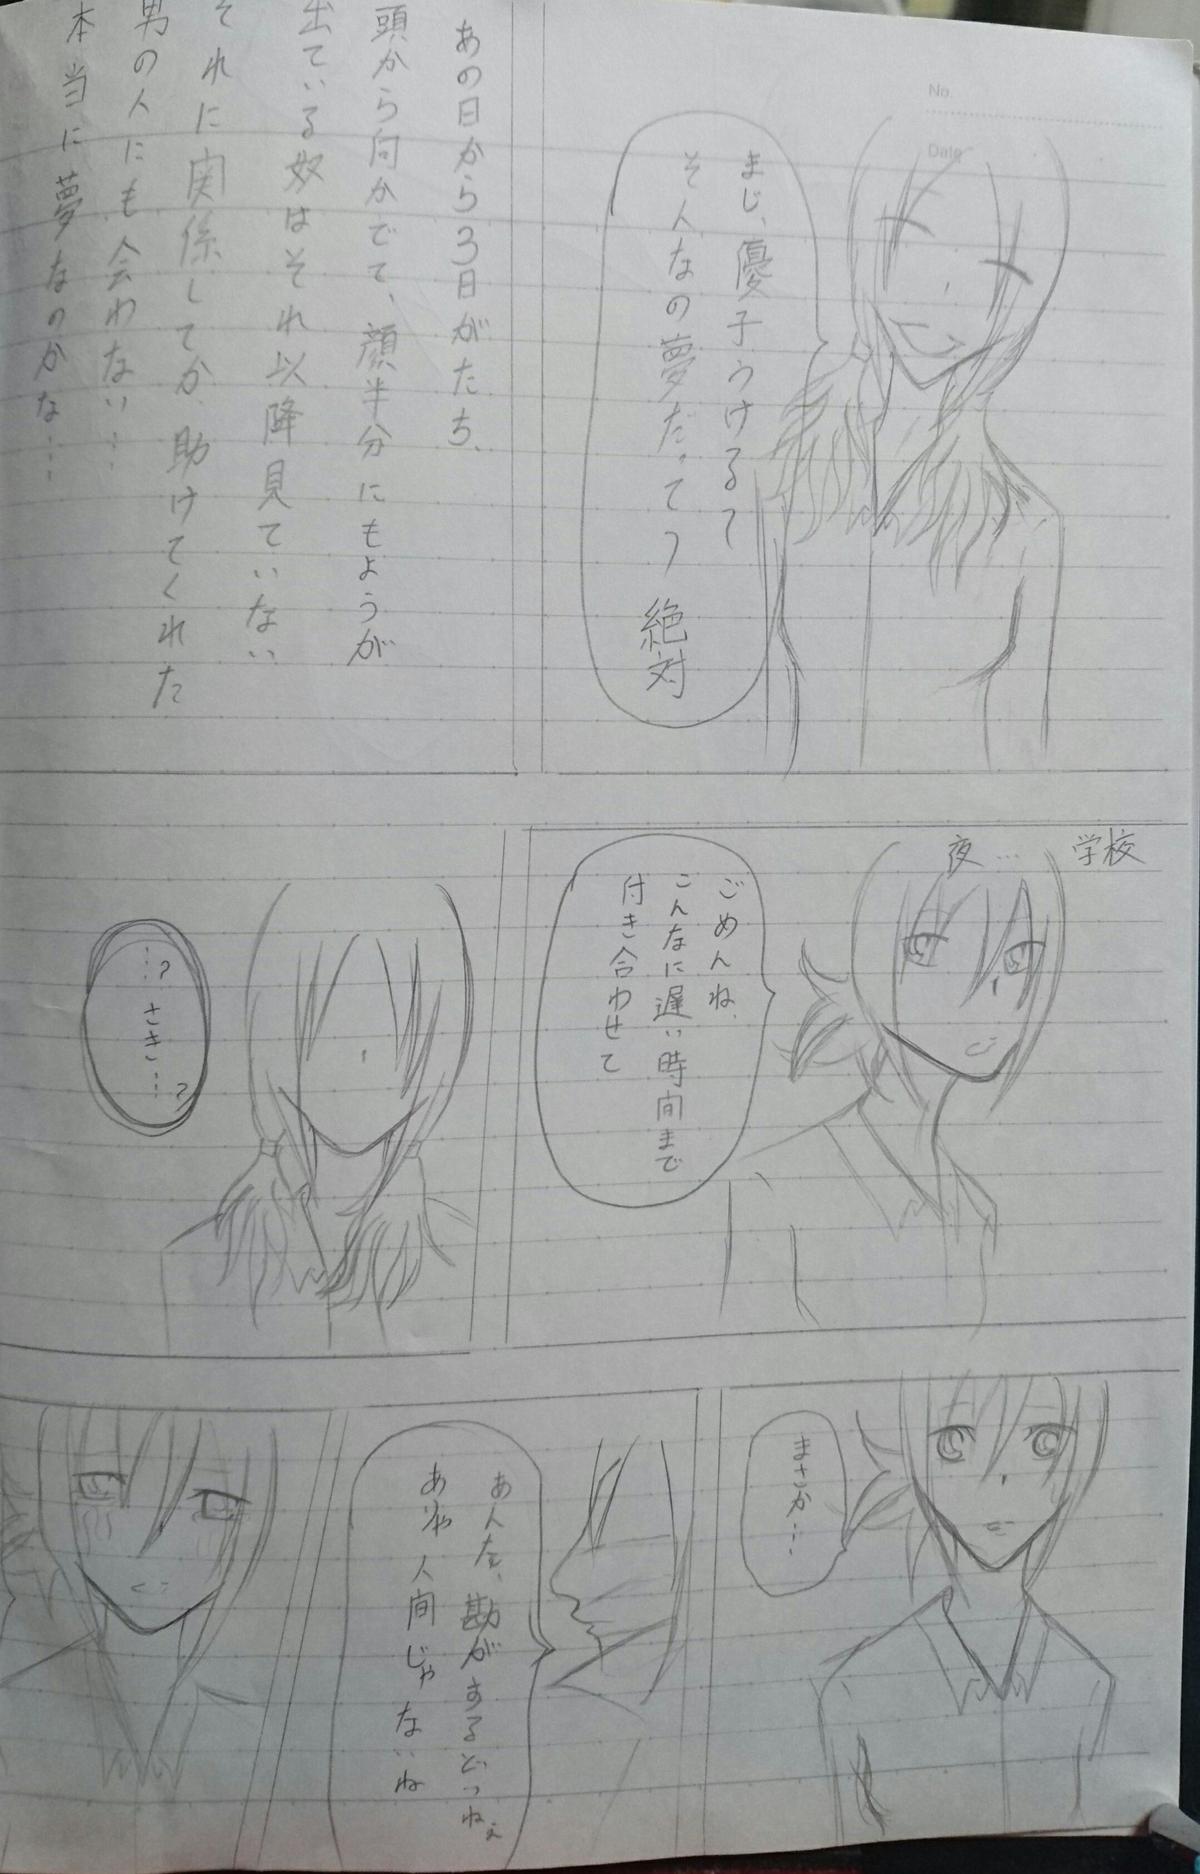 No.
Date
まじ、優子うけるー
そんなの夢だってっ 絶対
あの日から3日がたち、
頭から向かでて、顔半分にもようが
出ている奴はそれ以降見ていない
それに関係してか、助けてくれた
男の人にも会わない…
本当に夢なのかな…
学校
夜…
ごめんね、
こんなに遅い時間まで
付き合わせて
…? さき…?
まさか…
あんた、勘がするどいねぇ
ありゃ人間じゃないね